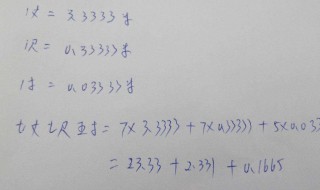 1丈 = 3.3333 米
1尺 = 0.33333米
1寸 = 0.03333米
七丈七尺五寸 = 7×3.3333 + 7×0.33333 + 5×0.033
= 23.33 + 2.331 + 0.1665